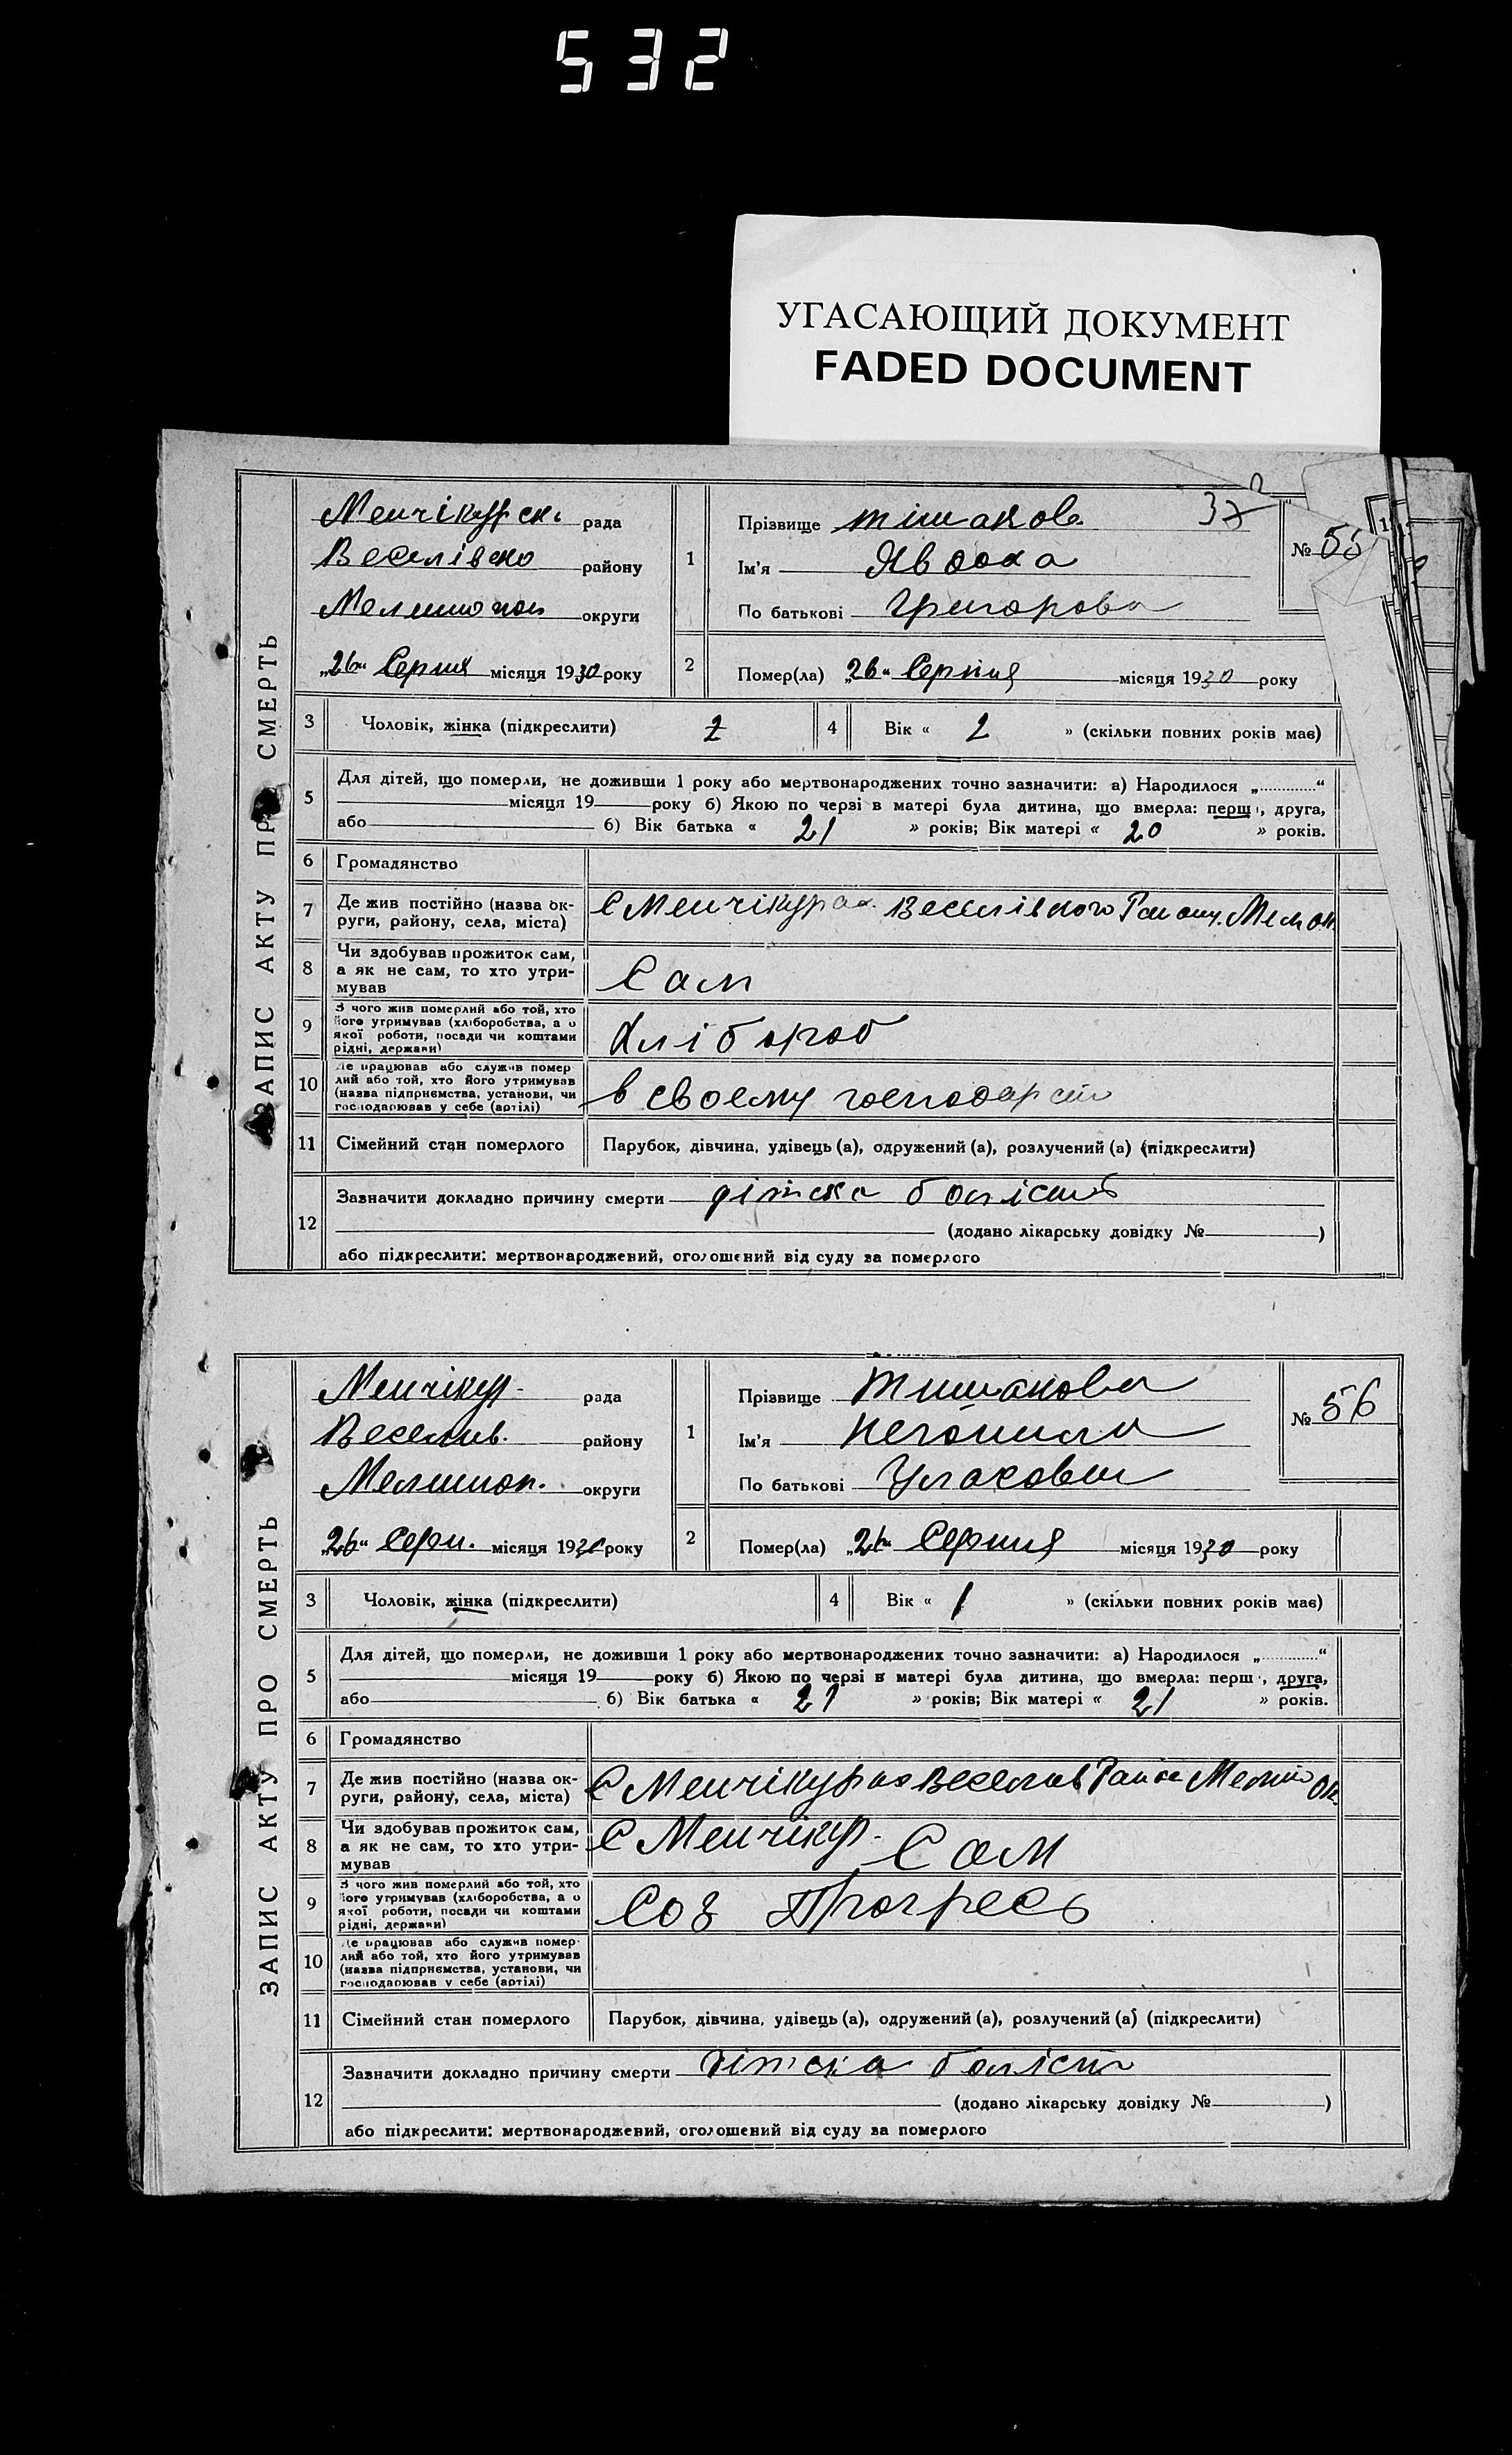 532
УГАСАЮЩИЙ ДОКУМЕНТ
FADED DOCUMENT
ЗАПИС АКТУ ПРО СМЕРТЬ
Менчікурск. рада
Веселівско району
Мелитоп округи
„26“ Серпня місяця 1930 року
1 Прізвище Тішакова
37
Ім'я Явдоха
По батькові Григорова
№ 55
2 Помер(ла) „26“ Серпня місяця 1930 року
3 Чоловік, жінка (підкреслити) 2
4 Вік « 2 » (скільки повних років має)
5 Для дітей, що померли, не доживши 1 року або мертвонароджених точно зазначити: а) Народилося „............“
місяця 19 року б) Якою по черзі в матері була дитина, що вмерла: перша, друга,
або б) Вік батька « 21 » років; Вік матері « 20 » років.
6 Громадянство
7 Де жив постійно (назва ок-
руги, району, села, міста)
С Менчікура Веселівкого Району. Мел ок.
8 Чи здобував прожиток сам,
а як не сам, то хто утри-
мував
Сам
9 З чого жив померлий або той, хто
його утримував (хліборобства, а о
якої роботи, посади чи коштами
рідні, держави)
Хлібороб
10 Де працював або служив помер
лий або той, хто його утримував
(назва підприємства, установи, чи
господарював у себе (артілі)
в своему господарст
11 Сімейний стан померлого
Парубок, дівчина, удівець (а), одружений (а), розлучений (а) (підкреслити)
12 Зазначити докладно причину смерти дітска болість
(додано лікарську довідку № )
або підкреслити: мертвонароджений, оголошений від суду за померлого
ЗАПИС АКТУ ПРО СМЕРТЬ
Менчікур рада
Веселив. району
Мелитоп. округи
„26“ Серп. місяця 1930 року
1 Прізвище Тишакова
Ім'я
По батькові
№ 56
2 Помер(ла) „26“ Серпня місяця 1930 року
3 Чоловік, жінка (підкреслити)
4 Вік « 1 » (скільки повних років має)
5 Для дітей, що померли, не доживши 1 року або мертвонароджених точно зазначити: а) Народилося „............“
місяця 19 року б) Якою по черзі в матері була дитина, що вмерла: перш , друга,
або б) Вік батька « 21 » років; Вік матері « 21 » років.
6 Громадянство
7 Де жив постійно (назва ок-
руги, району, села, міста)
С Менчікур Веселив Району Мелит ок.
8 Чи здобував прожиток сам,
а як не сам, то хто утри-
мував
С Менчікур. Сам
9 З чого жив померлий або той, хто
його утримував (хліборобства, а о
якої роботи, посади чи коштами
рідні, держави)
Соз Прогресь
10 Де працював або служив помер-
лий або той, хто його утримував
(назва підприємства, установи, чи
господарював у себе (артілі)
11 Сімейний стан померлого
Парубок, дівчина, удівець (а), одружений (а), розлучений (а) (підкреслити)
12 Зазначити докладно причину смерти дітска боліст
(додано лікарську довідку № )
або підкреслити: мертвонароджений, оголошений від суду за померлого